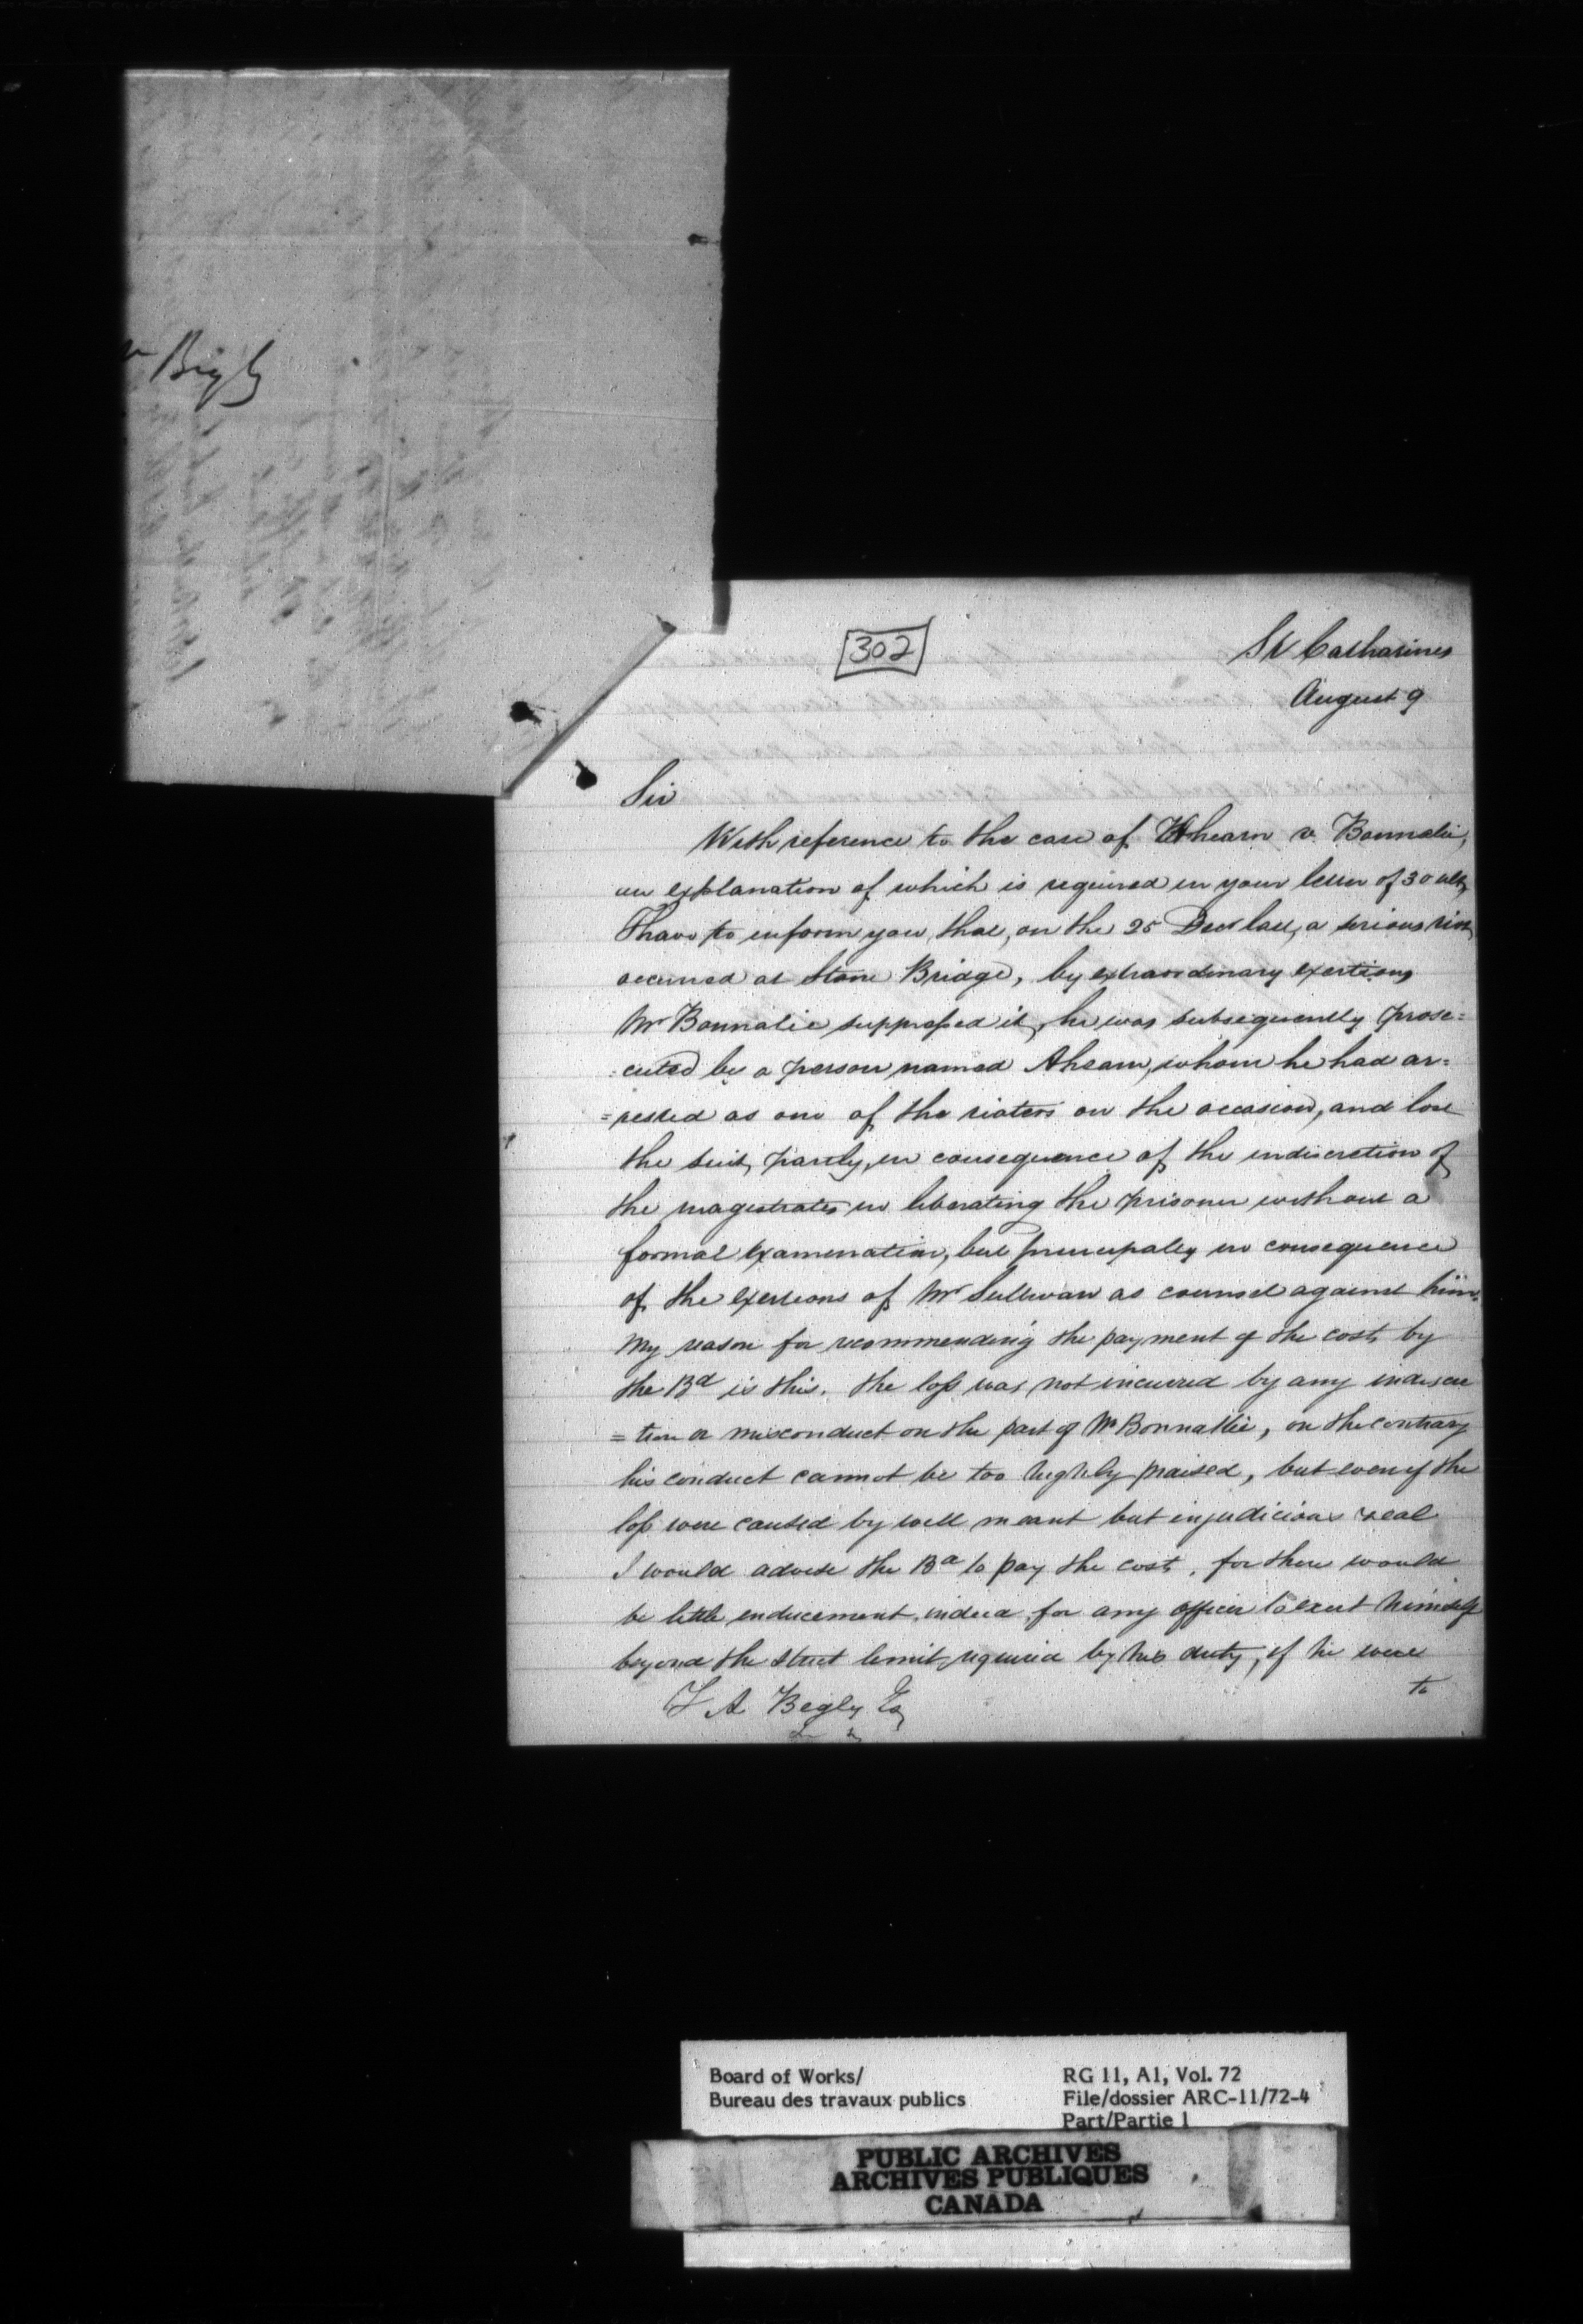 Bigly
302
St Catharines
August 9
Sir
With reference to the case of Ahearn v. Bonnalie,
an explanation of which is required in your letter of 30 ult,
I have to inform you, that, on the 25 Decr last, a serious riot,
occurred at Stone Bridge, by extraordinary exertions
Mr Bonnalie suppressed it, he was subsequently prose=
=cuted by a person named Ahearn, whom he had ar=
=rested as one of the rioters on the occasion, and lost
the suit, partly, in consequence of the indiscretion of
the magistrates in liberating the prisoner without a
formal examination, but principaley in consequence
of the exertions of Mr Sullivan as counsel against him.
My reason for recommending the payment of the costs by
the Bd is this. the loss was not incurred by any indiscre
=tion or misconduct on the part of Mr Bonnallie, on the contrary
his conduct cannot be too highly praised, but even if the
loss were caused by well meant but injudicious zeal
I would advise the Bd to pay the costs, for there would
be little inducement indeed for any officer to exert himself
beyond the strict limit required by his duty, if he were
to
T A Begly Esq
Board of Works/
Bureau des travaux publics
RG 11, A1, Vol. 72
File/dossier ARC-11/72-4
Part/Partie 1
PUBLIC ARCHIVES
ARCHIVES PUBLIQUES
CANADA